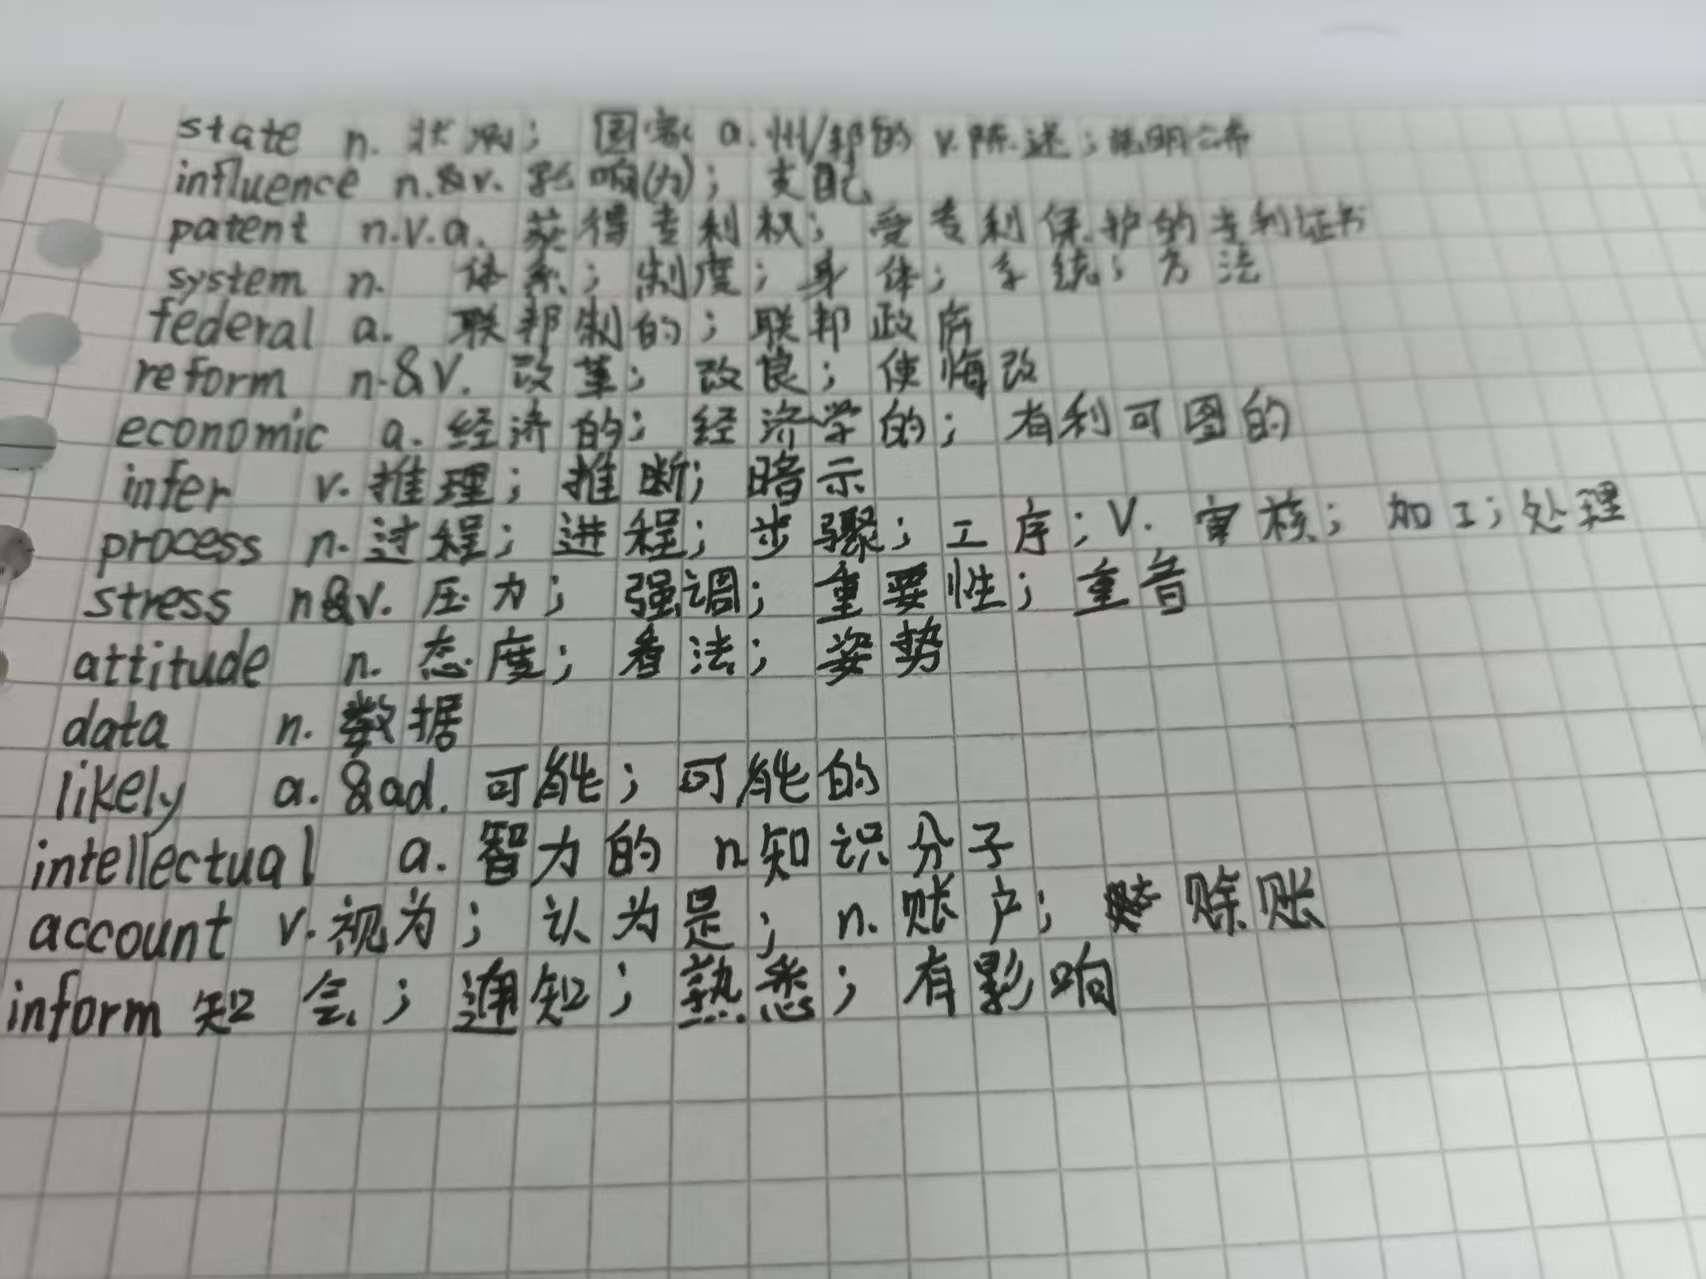 state n. 状况; 国家 a. 州/邦的 v. 陈述; 说明公布
influence n.&v. 影响(力); 支配
patent n.v.a. 获得专利权; 受专利保护的专利证书
system n. 体系; 制度; 身体; 系统; 方法
federal a. 联邦制的; 联邦政府
reform n.&v. 改革; 改良; 使悔改
economic a. 经济的; 经济学的; 有利可图的
infer v. 推理; 推断; 暗示
process n. 过程; 进程; 步骤; 工序; V. 审核; 加工; 处理
stress n&v. 压力; 强调; 重要性; 重音
attitude n. 态度; 看法; 姿势
data n. 数据
likely a. &ad. 可能; 可能的
intellectual a. 智力的 n 知识分子
account v. 视为; 认为是; n. 账户; 赊账
inform 知会; 通知; 熟悉; 有影响